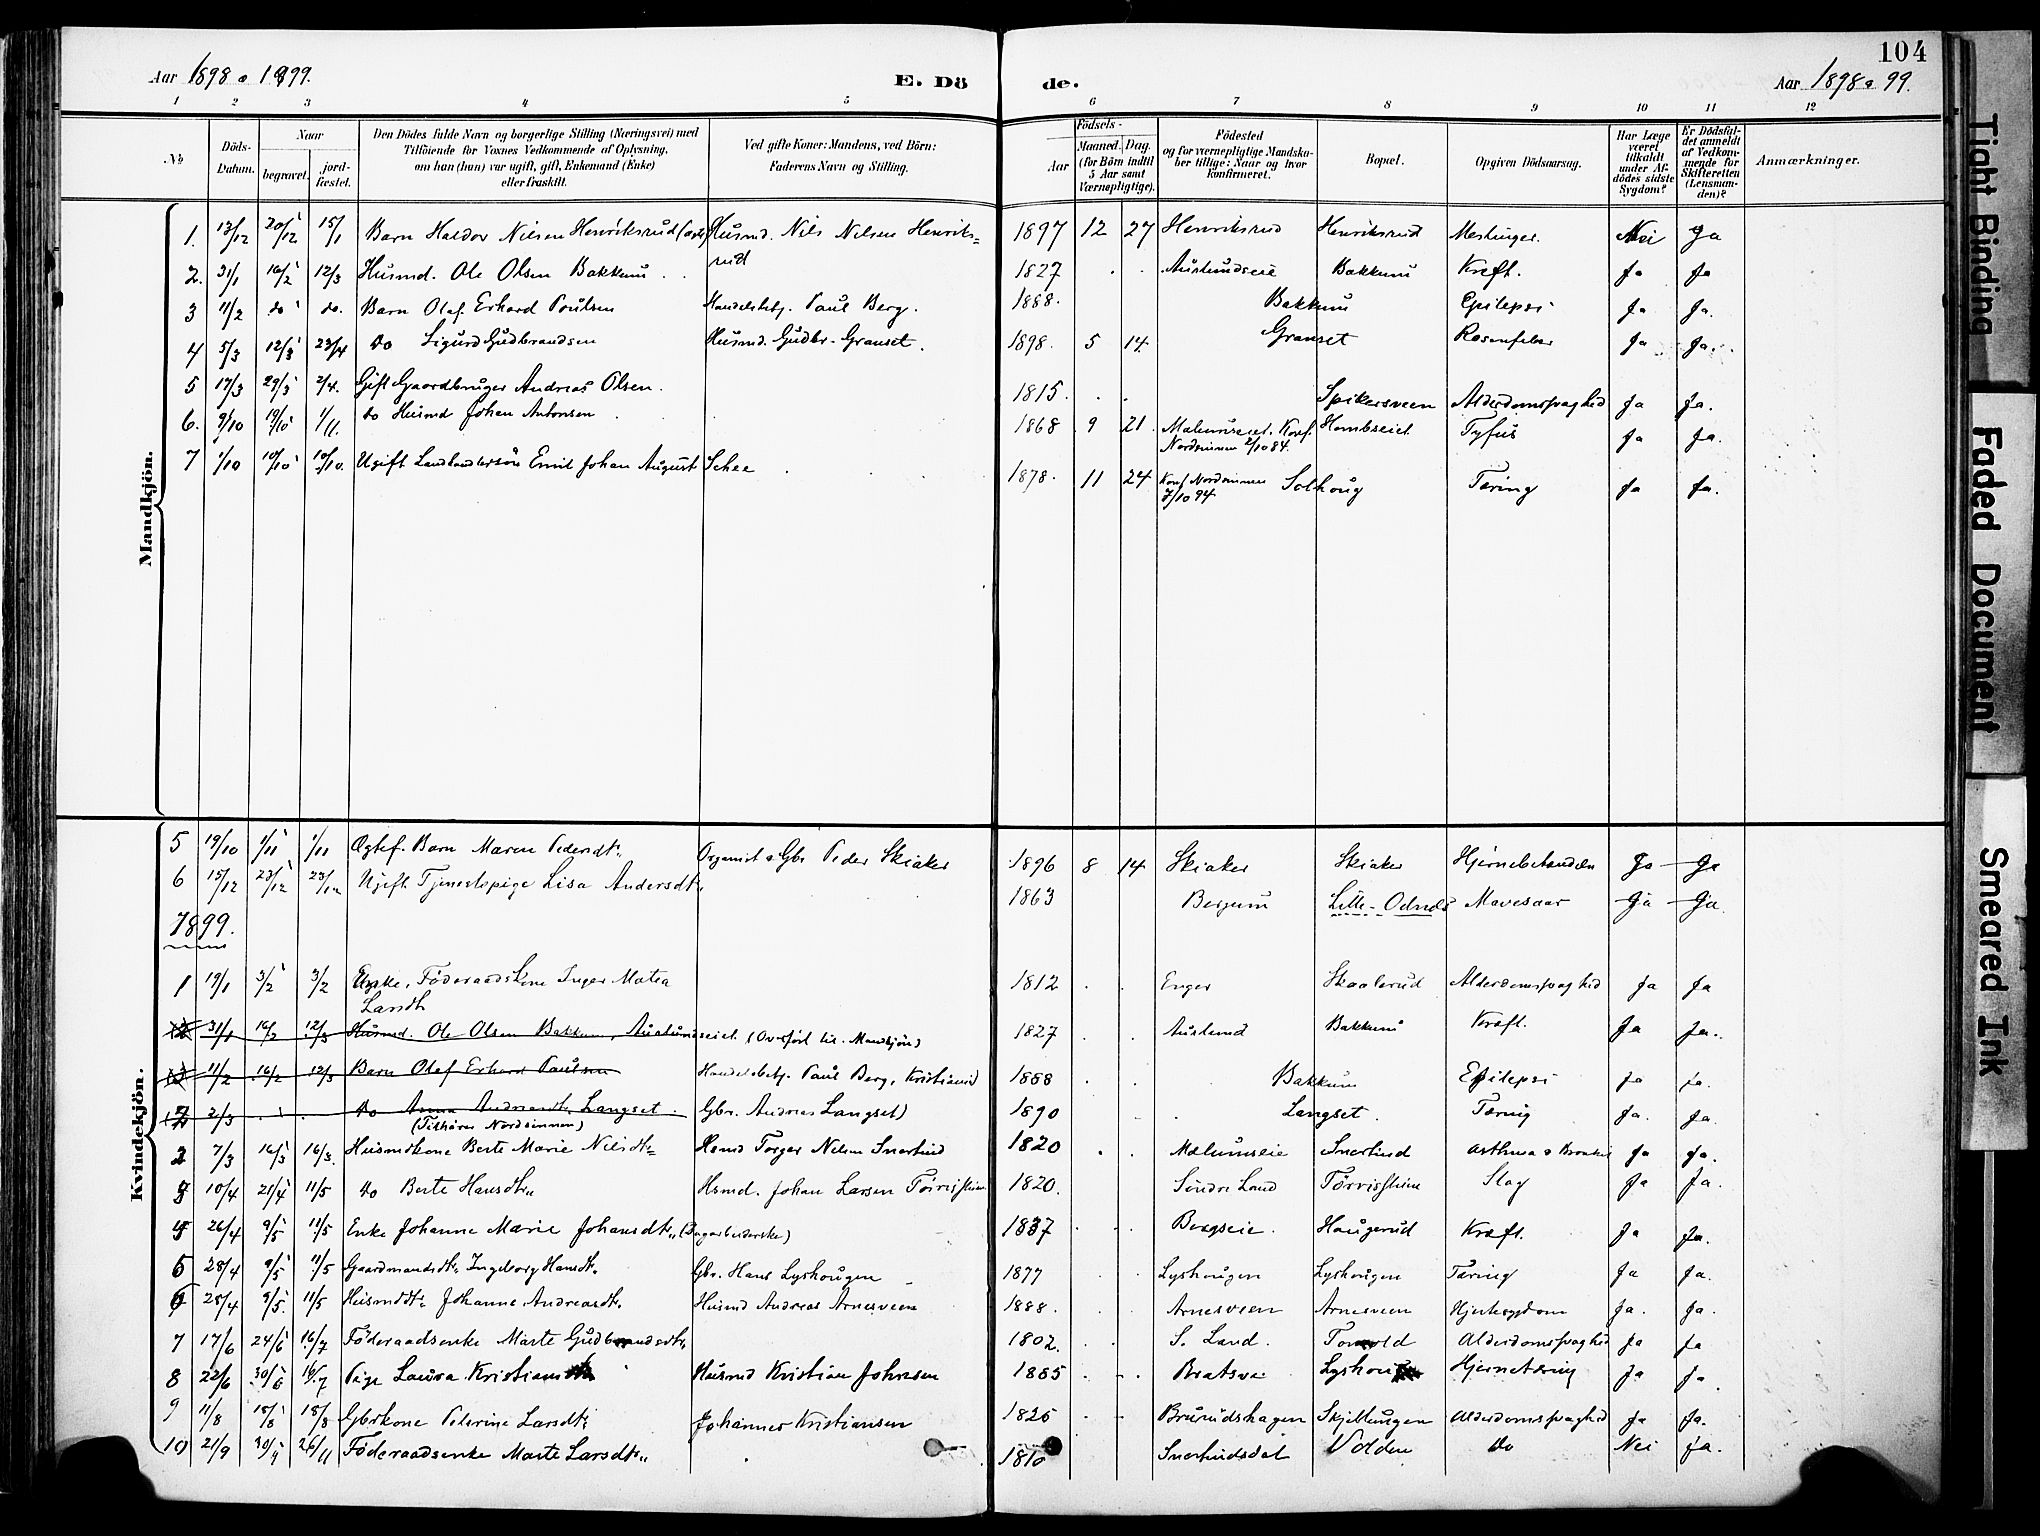 104
Aar 1898 o 1899. E. Dö de. Aar 1898 o 99.
1 2 3 4 5 6 7 8 9 10 11 12
No Döds-Datum. Naar begravet. jord-fæstet. Den Dödes fulde Navn og borgerlige Stilling (Næringsvei) med Tilföiende for Voxnes Vedkommende af Oplysning, om han (hun) var ugift, gift, Enkemand (Enke) eller fraskilt. Ved gifte Koner: Mandens, ved Börn: Faderens Navn og Stilling. Födsels- Aar Maaned. Dag. (for Börn indtil 5 Aar samt Værnepligtige). Födested og for værnepligtige Mandskaber tillige: Naar og hvor konfirmeret. Bopæl. Opgiven Dödsaarsag. Har Læge været tilkaldt under Afdödes sidste Sygdom? Er Dödsfaldet anmeldt af Vedkommende for Skifteretten (Lensmanden)? Anmærkninger.
Mandkjön.
1. 13/12 20/12 15/1 Barn Haldor Nilsen Henriksrud Husmd. Nils Nilsen Henriks=rud 1897 12 27 Henriksrud Henriksrud Meslinger. Nei Ja
2. 31/1 16/2 12/3 Husmd. Ole Olsen Bakkum 1827 Auslundseie Bakkum Kræft. Ja Ja
3 11/2 do do. Barn Olaf Erhard Paulsen Handelsbetj. Paul Berg. 1888. Bakkum Epilepsi Ja Ja.
4 5/3 12/3 23/4 do Sigurd Gudbrandsen Husmd. Gudbr. Granset. 1898. 5 14. Granset Ja Ja.
5 17/3 29/3 2/4. Gift Gaardbruger Andreas Olsen. 1815. Spikersveen Alderdomssvaghed Ja Ja.
6. 9/10 19/10 1/11. do Husmd Johan Antonsen 1868 9 21. Konf. Nordsinnen 2/10 84. Tyfus Ja Ja.
7 1/10 10/10 10/10. Ugift Landhandlersön Emil Johan August Schee 1878. 11 24 Konf Nordsinnen 7/10 94 Solhoug Tæring Ja Ja.
Kvindekjön.
5 19/10 1/11 1/11 Ægtef. Barn Maren Pedersdtr. Organist & Gbr. Peder Skiaker 1896 8 14 Skiaker Skiaker Hjernebetændelse Ja Ja
6 15/12 23/12 23/12 Ugift Tjenestepige Lisa Andersdtr. 1863 Bergum Lille-Odnes Mavesaar Ja Ja.
1899.
1 19/1 3/2 3/2 Enke, Föderaadskone Inger Matea Landh 1812 Enger Skaalerud Alderdomssvaghed Ja Ja
31/1 16/2 12/3 Husmd. Ole Olsen Bakkum, Auslundseiet (Overført til Mandkjön) 1827 Auslund Bakkum Kræft. Ja Ja.
11/2 16/2 12/3 Barn Olaf Erhard Paulsen Handelsbetj. Paul Berg, Kristiania 1888 Bakkum Epilepsi Ja Ja.
2/3 do Anna Andreasdtr. Langset. (Tilhører Nordsinnen) Gbr. Andreas Langset) 1890 Langset. Tæring Ja. Ja.
2 7/3 16/3 16/3. Husmdkone Berte Marie Nilsdtr. Hsmd Torger Nilsen Snerlund 1820 Mælumseie Asthma & Ja Ja.
3 10/4 21/4 11/5 do Berte Hansdtr. Hsmd. Johan Larsen 1820. Söndre Land Slag Ja Ja.
4 26/4 9/5 11/5 Enke Johanne Marie Johansdtr. 1837 Bergseie. Haugerud Kræft. Ja Ja.
5 28/4 9/5 11/5 Gaardmandsdtr. Ingeborg Hansdtr. Gbr. Hans Lyshougen 1877 Lyshougen Lyshougen Tæring Ja Ja.
6 28/4 9/5. 11/5 Husmddtr. Johanne Andreasdtr. Husmd Andreas Arnesveen 1888. Arnesveen Arnesveen Hjertesygdom Ja. Ja.
7 17/6 24/6 16/7 Föderaadsenke Marte Gudbrandsdtr. 1802. S. Land. Alderdomssvaghed Ja Ja
8 22/6 30/6 16/7 Pige Laura Kristiansdtr Husmd Kristian Johnsen 1885 Hjernetæring Ja Ja.
9 11/8 18/8 18/8 Gbrkone Peterine Larsdtr. Johannes Kristiansen 1826 Brurudshagen Skjellungen Alderdomssvaghed Ja Ja.
10 21/9 30/9 26/11 Föderaadsenke Marte Larsdtr. 1810 Volden do Nei Ja.
Tight Binding
Faded Document
Smeared Ink